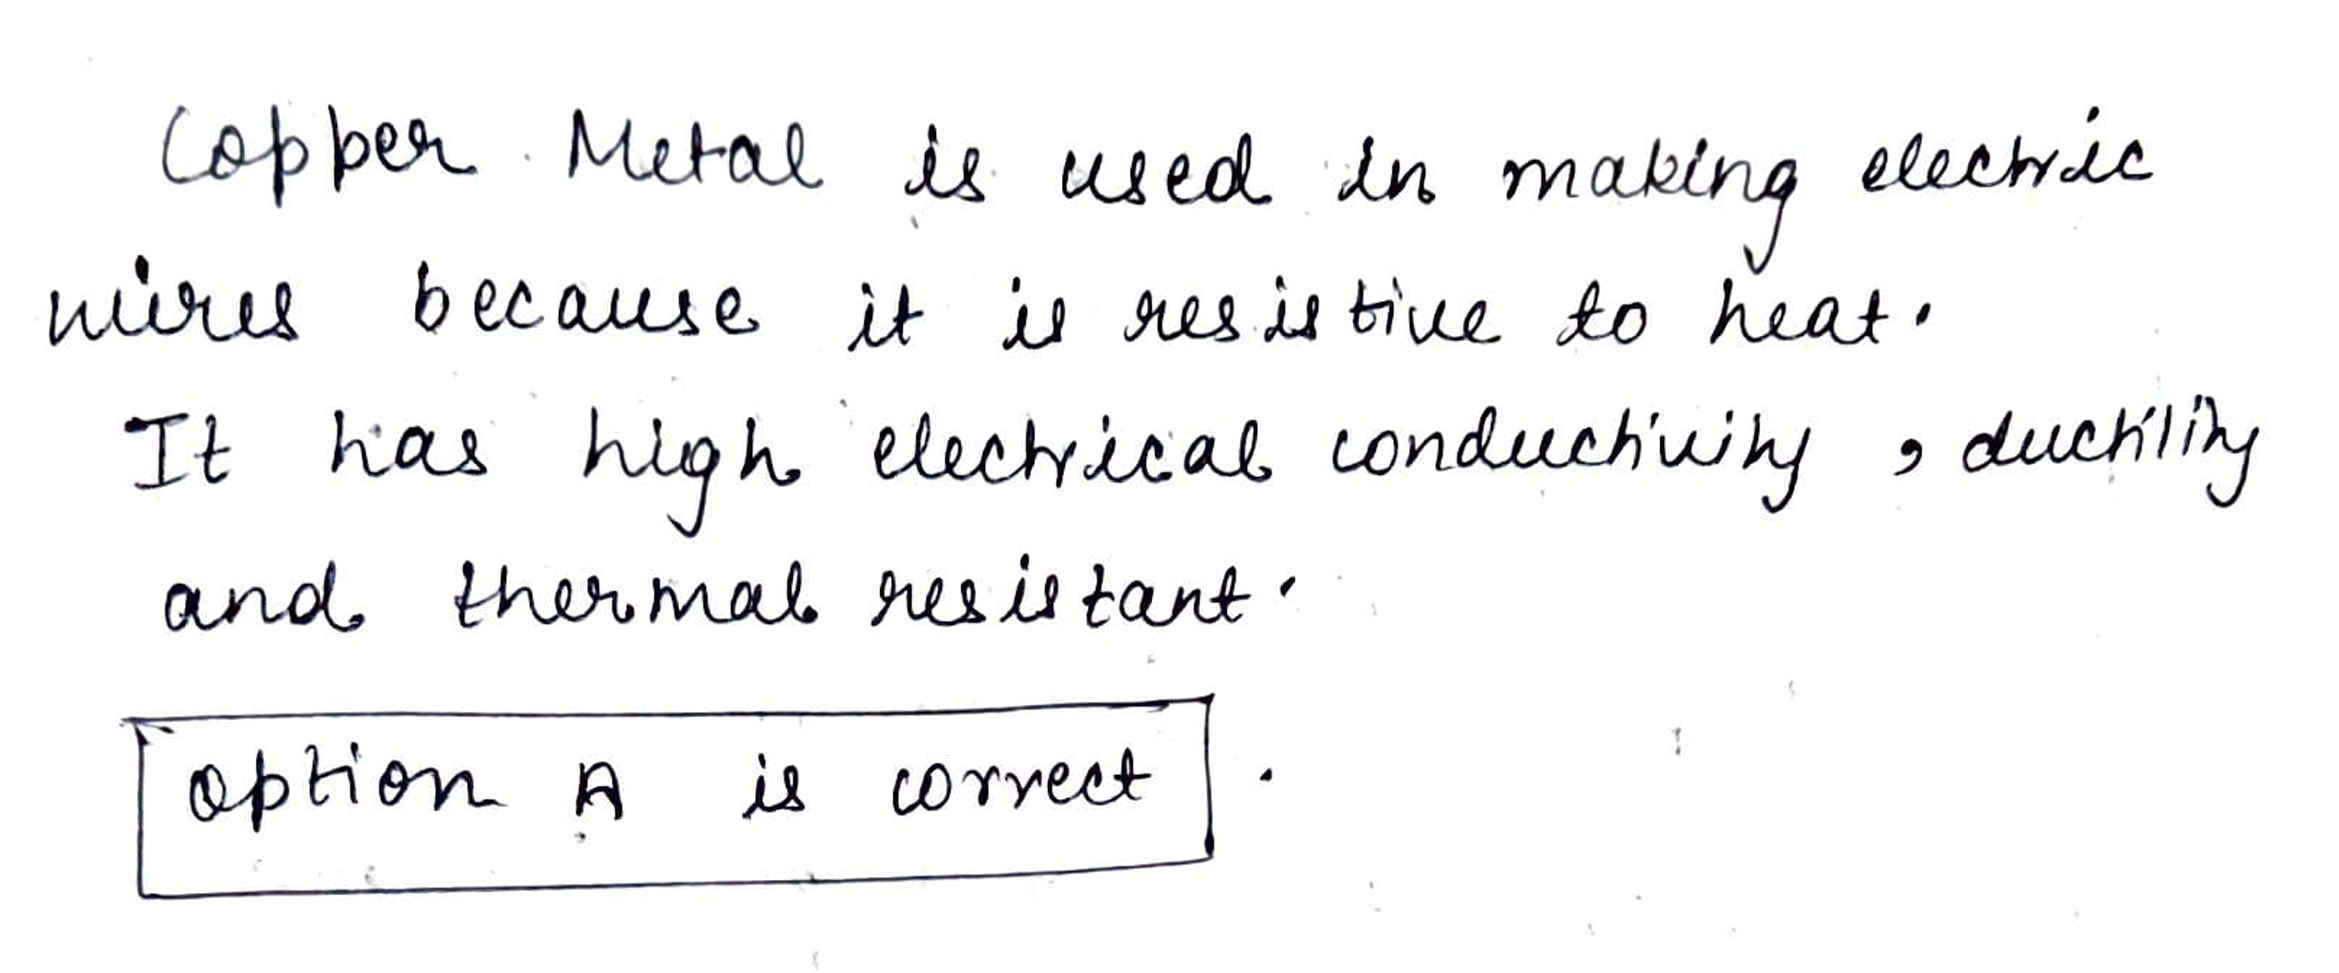 Copper Metal is used in making electric
wires because it is resistive to heat.
It has high electrical conductivity, ductility
and thermal resistant.
option A is correct.